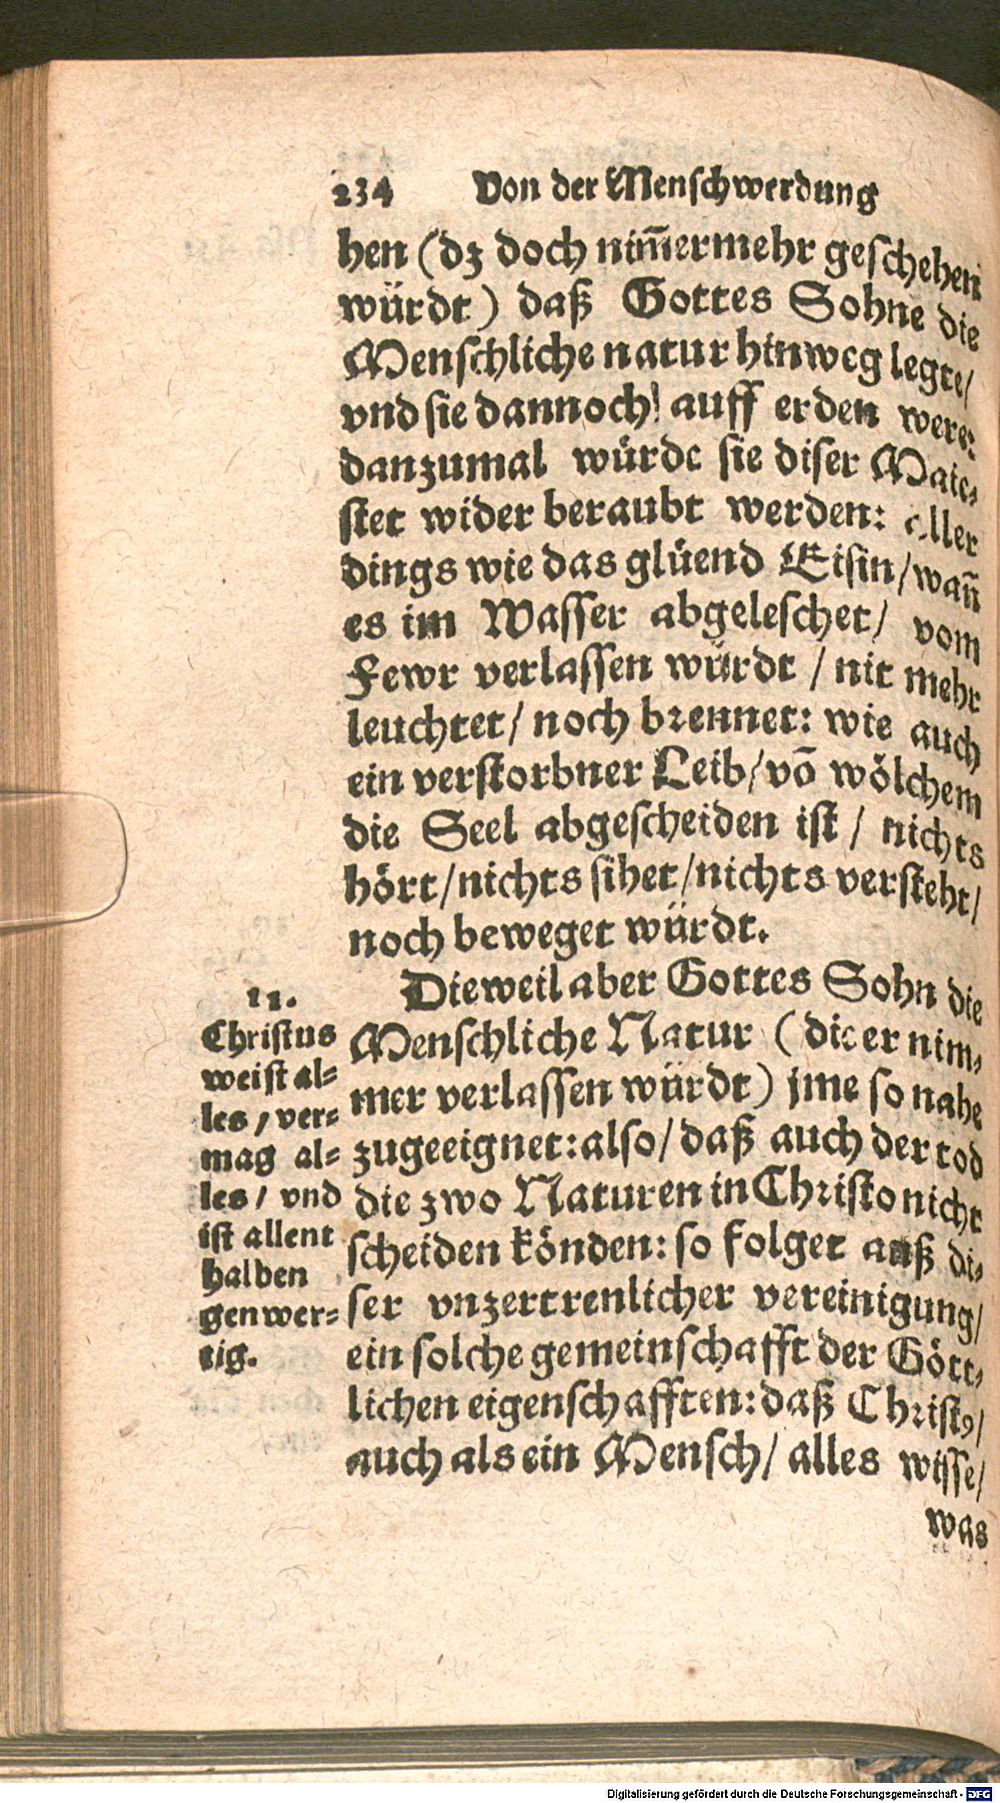 234 Von der Menschwerdung
hen (dz doch nim̃ermehr geschehen
würdt) daß Gottes Sohne die
Menschliche natur hinweg legte/
vnd sie dannoch auff erden were:
danzumal würde sie diser Maie-
stet wider beraubt werden: aller
dings wie das glüend Eisin/wañ
es im Wasser abgeleschet/ vom
Fewr verlassen würdt / nit mehr
leuchtet/ noch brennet: wie auch
ein verstorbner Leib/võ wölchem
die Seel abgescheiden ist / nichts
hört/nichts sihet/nichts versteht/
noch beweget würdt.
Dieweil aber Gottes Sohn die
Menschliche Natur (die er nim-
mer verlassen würdt) jme so nahe
zugeeignet: also/ daß auch der tod
die zwo Naturen in Christo nicht
scheiden könden: so folget auß di-
ser vnzertrenlicher vereinigung/
ein solche gemeinschafft der Gött-
lichen eigenschafften: daß Christꝰ/
auch als ein Mensch/ alles wisse/
was
11.
Christus
weist al-
les / ver-
mag al-
les / vnd
ist allent
halben
genwer-
tig.
Digitalisierung gefördert durch die Deutsche Forschungsgemeinschaft - DFG